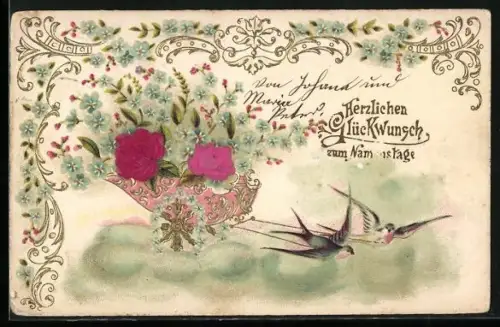 von Johann und
Maria
Peter
Herzlichen
Glückwunsch
zum Namenstage